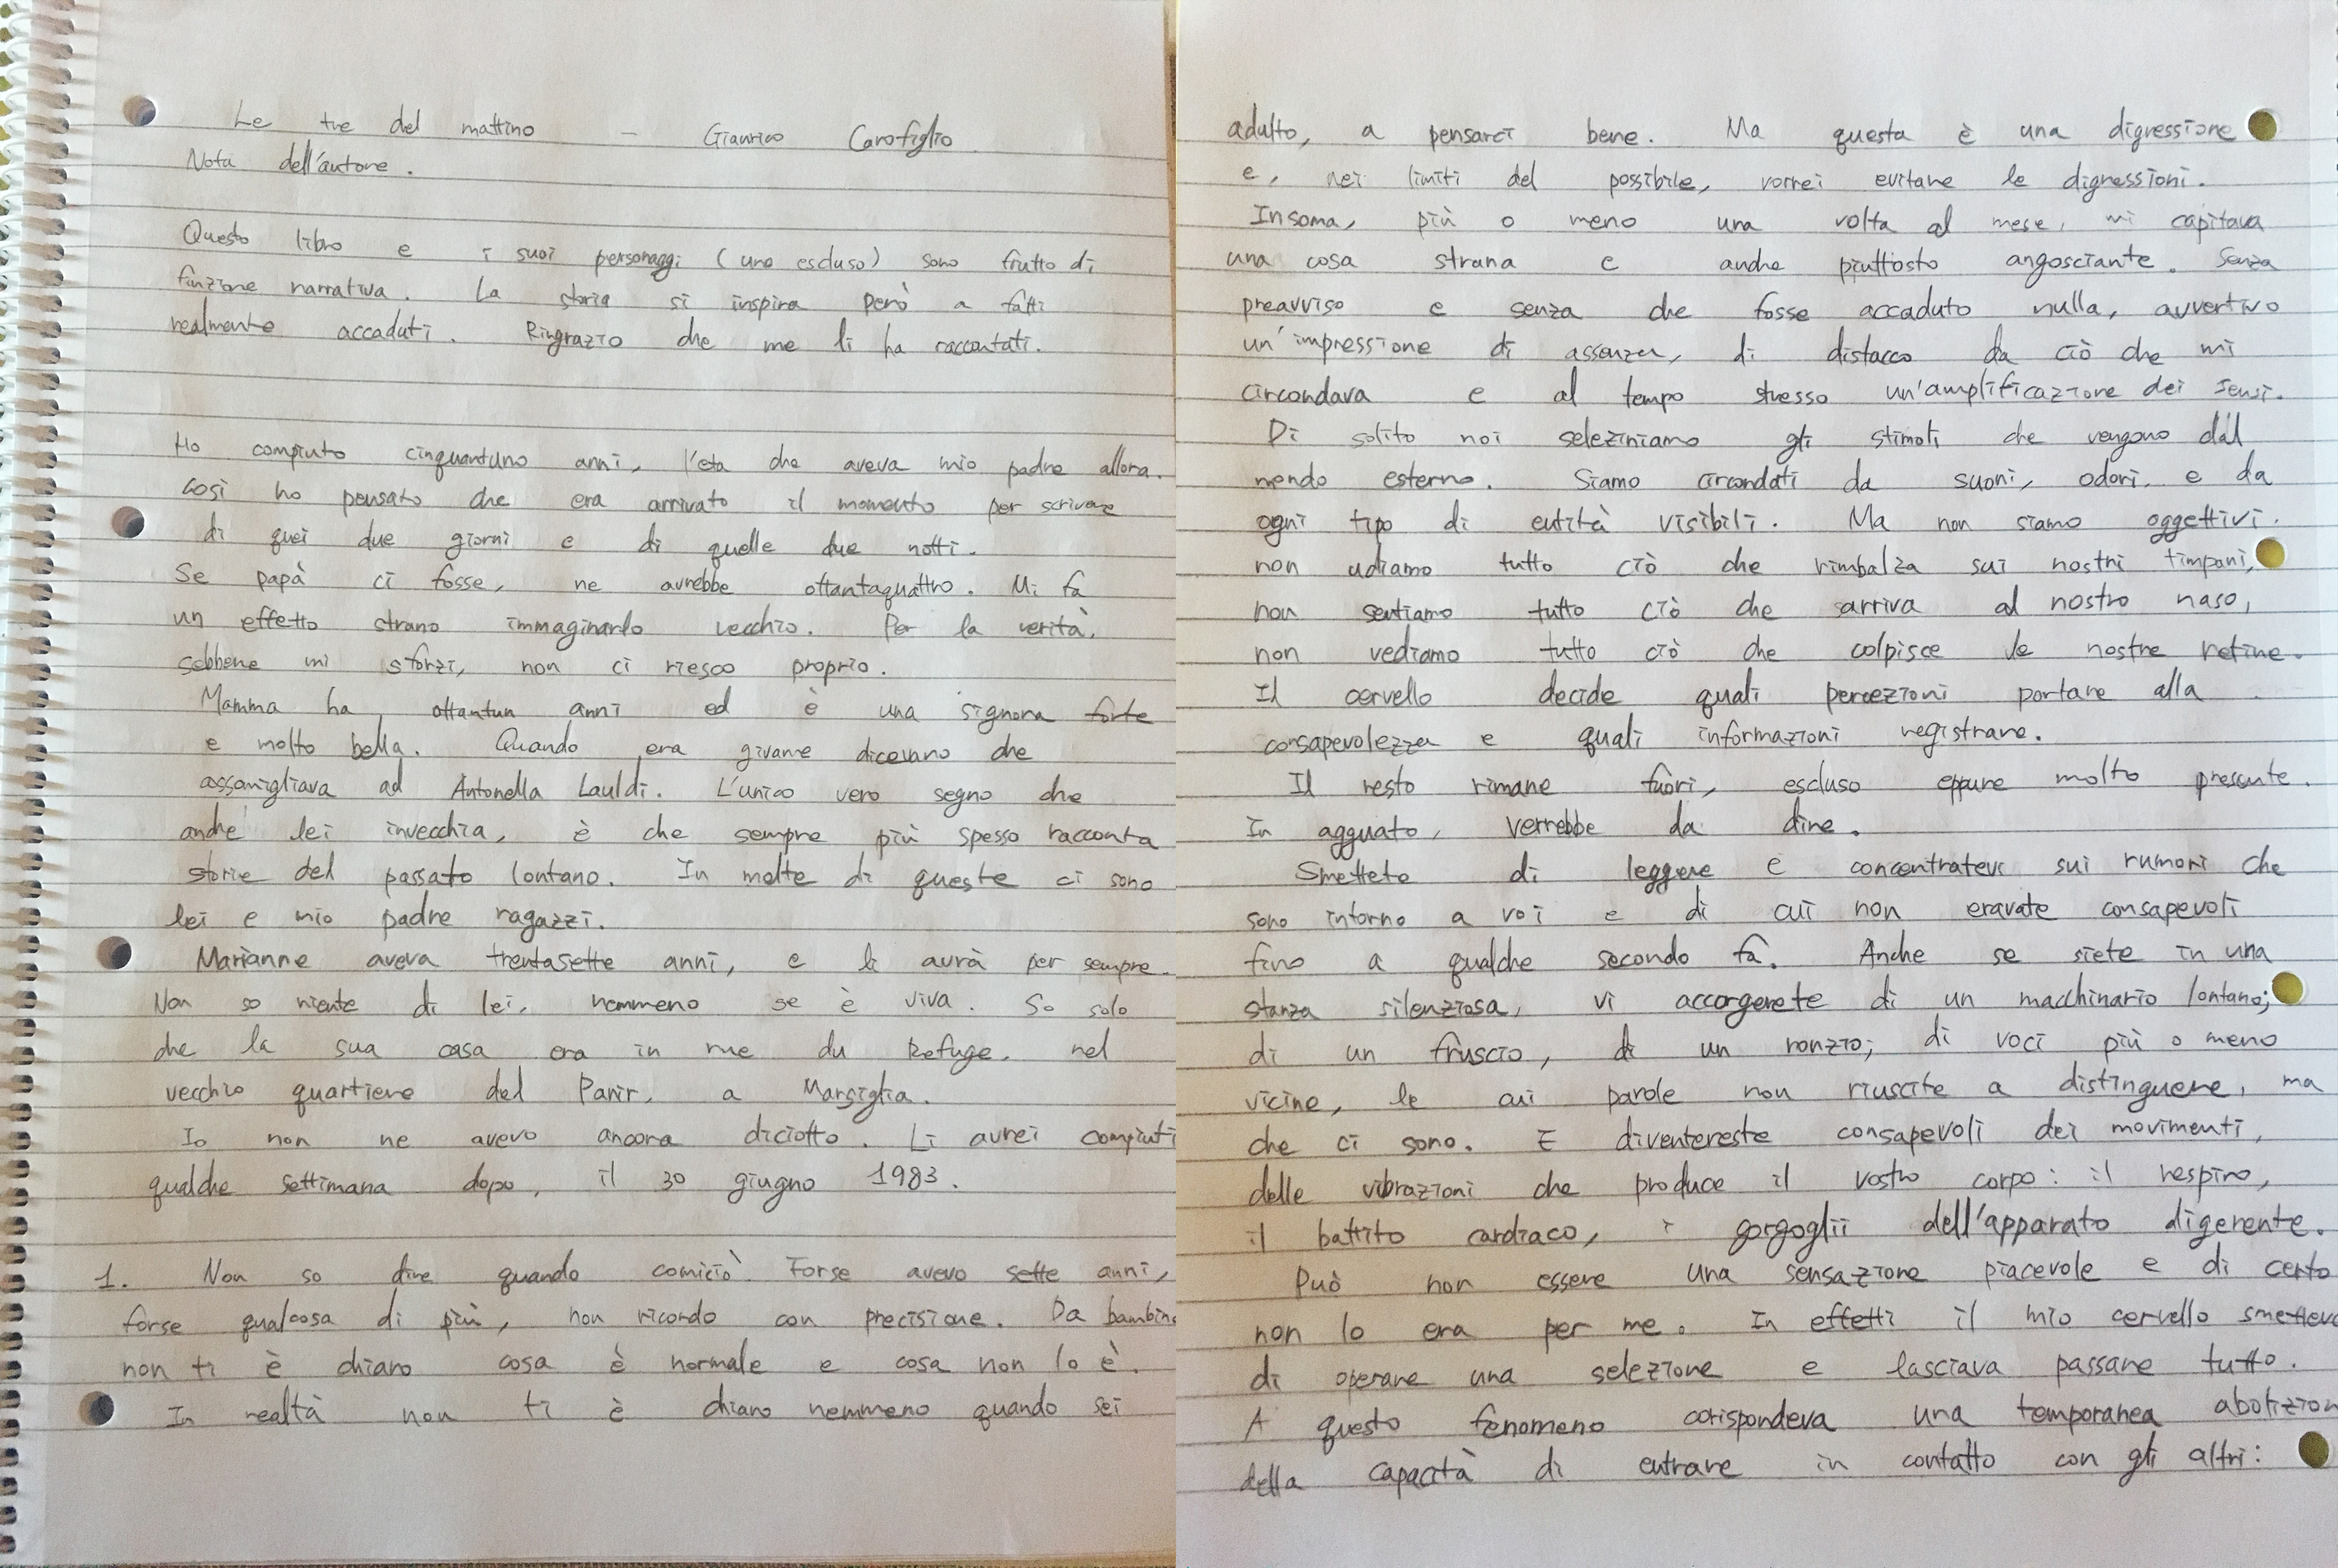 Le tre del mattino - Gianrico Carofiglio
Nota dell'autore.
Questo libro e i suoi personaggi (uno escluso) sono frutto di
finzione narrativa. La storia si inspira però a fatti
realmente accaduti. Ringrazio che me li ha raccontati.
Ho compiuto cinquantuno anni, l'eta che aveva mio padre allora.
così ho pensato che era arrivato il momento per scrivere
di quei due giorni e di quelle due notti.
Se papà ci fosse, ne avrebbe ottantaquattro. Mi fa
un effetto strano immaginarlo vecchio. Per la verità,
sebbene mi sforzi, non ci riesco proprio.
Mamma ha ottantun anni ed è una signora forte
e molto bella. Quando era givane dicevano che
assomigliava ad Antonella Lauldi. L'unico vero segno che
anche lei invecchia, è che sempre più spesso racconta
storie del passato lontano. In molte di queste ci sono
lei e mio padre ragazzi.
Marianne aveva trentasette anni, e li avrà per sempre.
Non so niente di lei, nemmeno se è viva. So solo
che la sua casa era in rue du Refuge, nel
vecchio quartiere del Panir, a Marsiglia.
Io non ne avevo ancora diciotto. Li avrei compiuti
qualche settimana dopo, il 30 giugno 1983.
1. Non so dire quando comiciò. Forse avevo sette anni,
forse qualcosa di più, non ricordo con precisione. Da bambino
non ti è chiaro cosa è normale e cosa non lo è.
In realtà non ti è chiaro nemmeno quando sei
adulto, a pensarci bene. Ma questa è una digressione
e, nei limiti del possibile, vorrei evitare le digressioni.
Insoma, più o meno una volta al mese, mi capitava
una cosa strana e anche piuttosto angosciante. Senza
preavviso e senza che fosse accaduto nulla, avvertivo
un'impressione di assenza, di distacco da ciò che mi
circondava e al tempo stesso un'amplificazione dei sensi.
Di solito noi seleziniamo gli stimoli che vengono dal
mondo esterno. Siamo circondati da suoni, odori, e da
ogni tipo di entità visibili. Ma non siamo oggettivi.
non udiamo tutto ciò che rimbalza sui nostri timpani,
non sentiamo tutto ciò che sarriva al nostro naso,
non vediamo tutto ciò che colpisce le nostre retine.
Il cervello decide quali percezioni portare alla
consapevolezza e quali informazioni registrare.
Il resto rimane fuori, escluso eppure molto presente.
In agguato, verrebbe da dire.
Smettete di leggere e concentratevi sui rumori che
sono intorno a voi e di cui non eravate consapevoli
fino a qualche secondo fa. Anche se siete in una
stanza silenziosa, vi accorgerete di un macchinario lontano;
di un fruscio, di un ronzio; di voci più o meno
vicine, le cui parole non riuscite a distinguere, ma
che ci sono. E diventereste consapevoli dei movimenti,
delle vibrazioni che produce il vostro corpo: il respiro,
il battito cardiaco, i gorgoglii dell'apparato digerente.
Può non essere una sensazione piacevole e di certo
non lo era per me. In effetti il mio cervello smetteva
di operare una selezione e lasciava passare tutto.
A questo fenomeno corispondeva una temporanea abolizion
della capacità di entrare in contatto con gli altri: